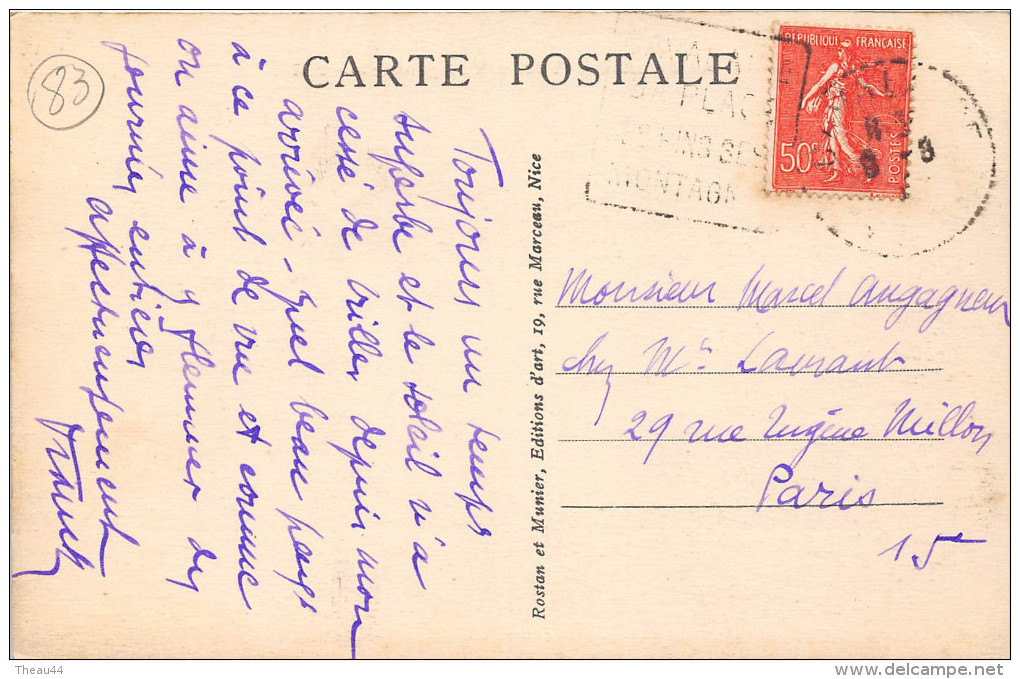 83
CARTE POSTALE
REPUBLIQUE FRANÇAISE
50c
POSTES
PLAG
MONTAGN
8 -3
Toujours un temps
superbe et le soleil n'a
cessé de briller depuis mon
arrivée - quel beau pays
à ce point de vue et comme
on aime à y flemmer des
journées entières
affectueusement
Rostan et Munier, Editions d'art, 19, rue Marceau, Nice
Monsieur Marcel Augagneur
chez Mr Laurant
29 rue Eugène Millon
Paris
15e
Theau44
www.delcampe.net